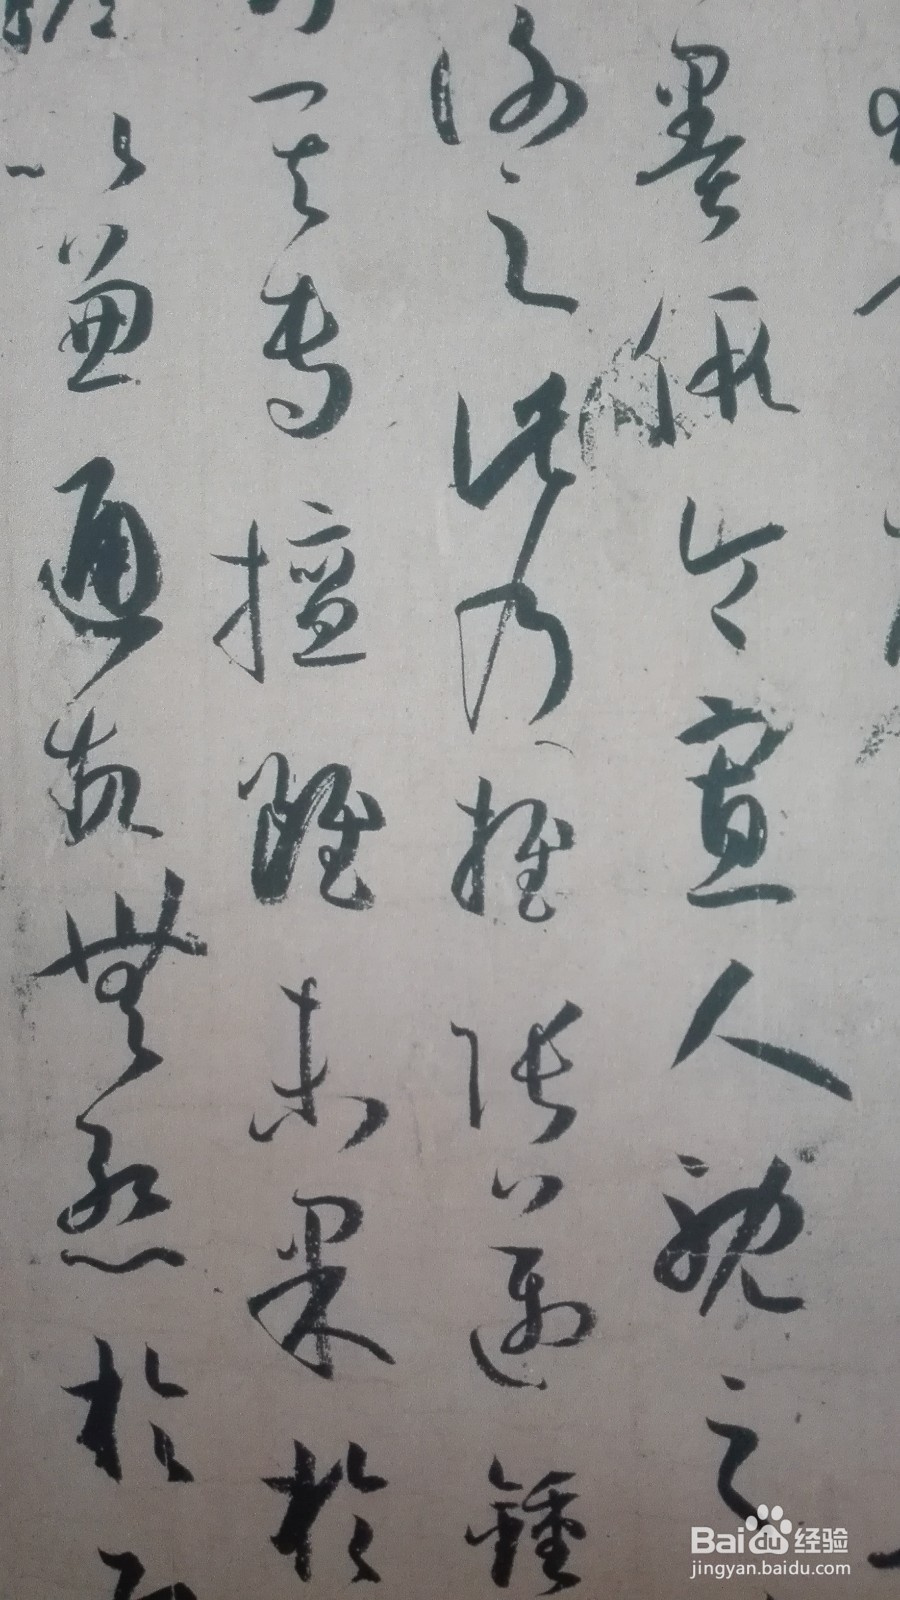 墨假令寡人耽之
謝之此乃推張邁鍾
其專擅雖未果於
以兼通故無慚於
Baidu经验
jingyan.baidu.com